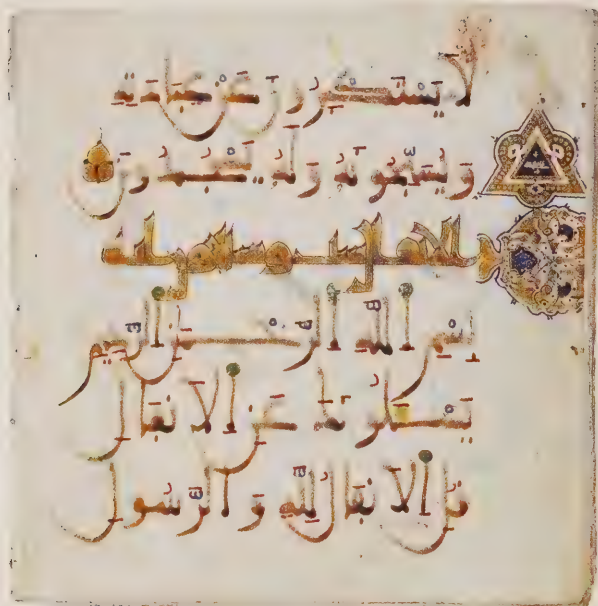 لَا يَسْتَكْبِرُونَ عَنْ عِبَادَتِهِ
وَيُسَبِّحُونَهُ وَلَهُ يَسْجُدُونَ
بِسْمِ اللَّهِ الرَّحْمَٰنِ الرَّحِيمِ
يَسْـَٔلُونَكَ عَنِ الْأَنفَالِ
قُلِ الْأَنفَالُ لِلَّهِ وَالرَّسُولِ